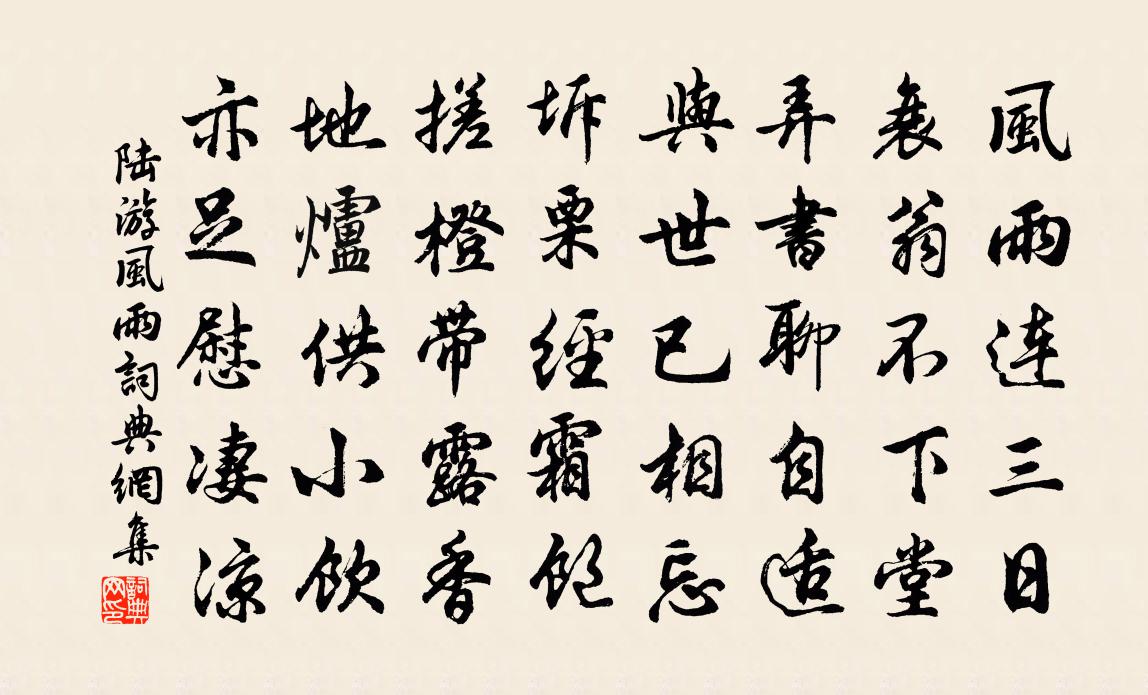 風雨連三日
衰翁不下堂
弄書聊自适
與世已相忘
坼栗經霜飽
搓橙帶露香
地爐供小飲
亦足慰凄凉
陆游風雨詞典網集
詞典網印